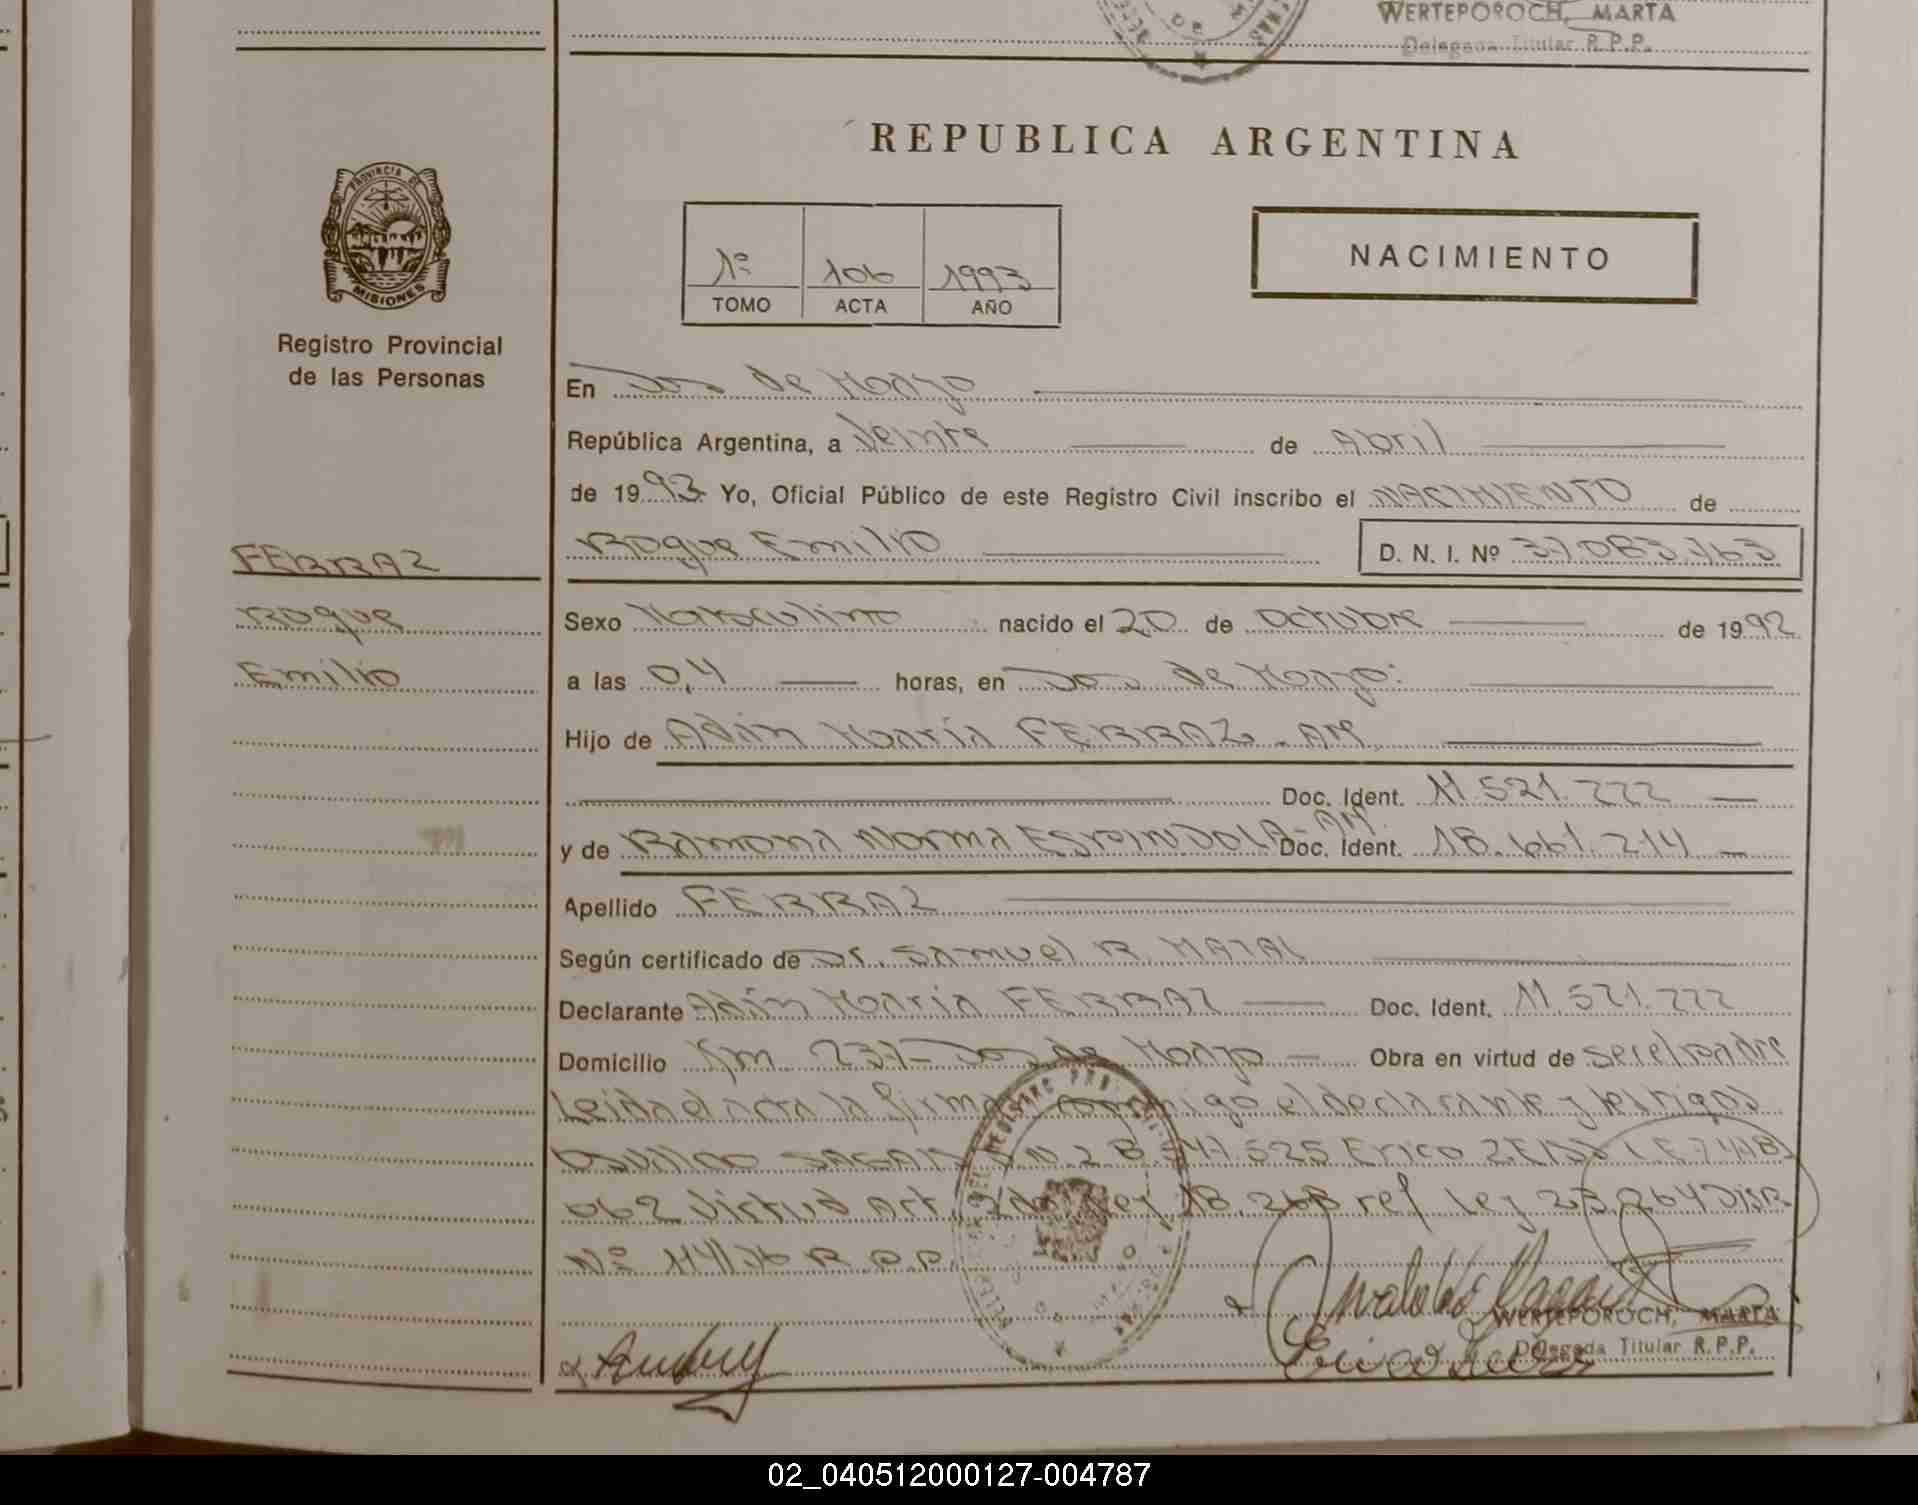 WERTEPOROCH, MARTA
Delegada Titular R.P.P.
REPUBLICA ARGENTINA
PROVINCIA DE
MISIONES
Registro Provincial
de las Personas
1º 106 1993
TOMO ACTA AÑO
NACIMIENTO
En Dos de Mayo
República Argentina, a Veinte de Abril
de 1993 Yo, Oficial Público de este Registro Civil inscribo el NACIMIENTO de
FERRAZ
Roque Emilio D. N. I. Nº 37.083.763
Roque
Emilio
Sexo Masculino nacido el 20 de Octubre de 1992
a las 0,4 horas, en Dos de Mayo:
Hijo de Adán María FERRAZ. AM
Doc. Ident. 11.521.222
y de Ramona Norma ESPINDOLA-AM. Doc. Ident. 18.661.214
Apellido FERRAZ
Según certificado de Dr. Samuel R.
Declarante Adán María FERRAZ Doc. Ident. 11.521.222
Domicilio Km 237-Dos de Mayo Obra en virtud de ser el padre
Leída el acta la firma conmigo el declarante y testigos
Erico
062 Virtud Art. 2do Ley 18.248 ref Ley 23.264 Disp.
Nº 114/76 R.P.P.
WERTEPOROCH, MARTA
Delegada Titular R.P.P.
02_040512000127-004787